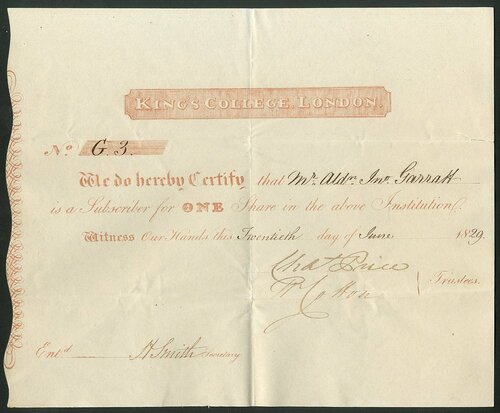 KING'S COLLEGE, LONDON.
No. G. 3.
We do hereby Certify that Mr. Aldn. Jno. Garratt
is a Subscriber for ONE Share in the above Institution.
Witness Our Hands this Twentieth day of June 1829
Chas. Price
W. Cotton
Trustees.
Entd. H Smith Secretary